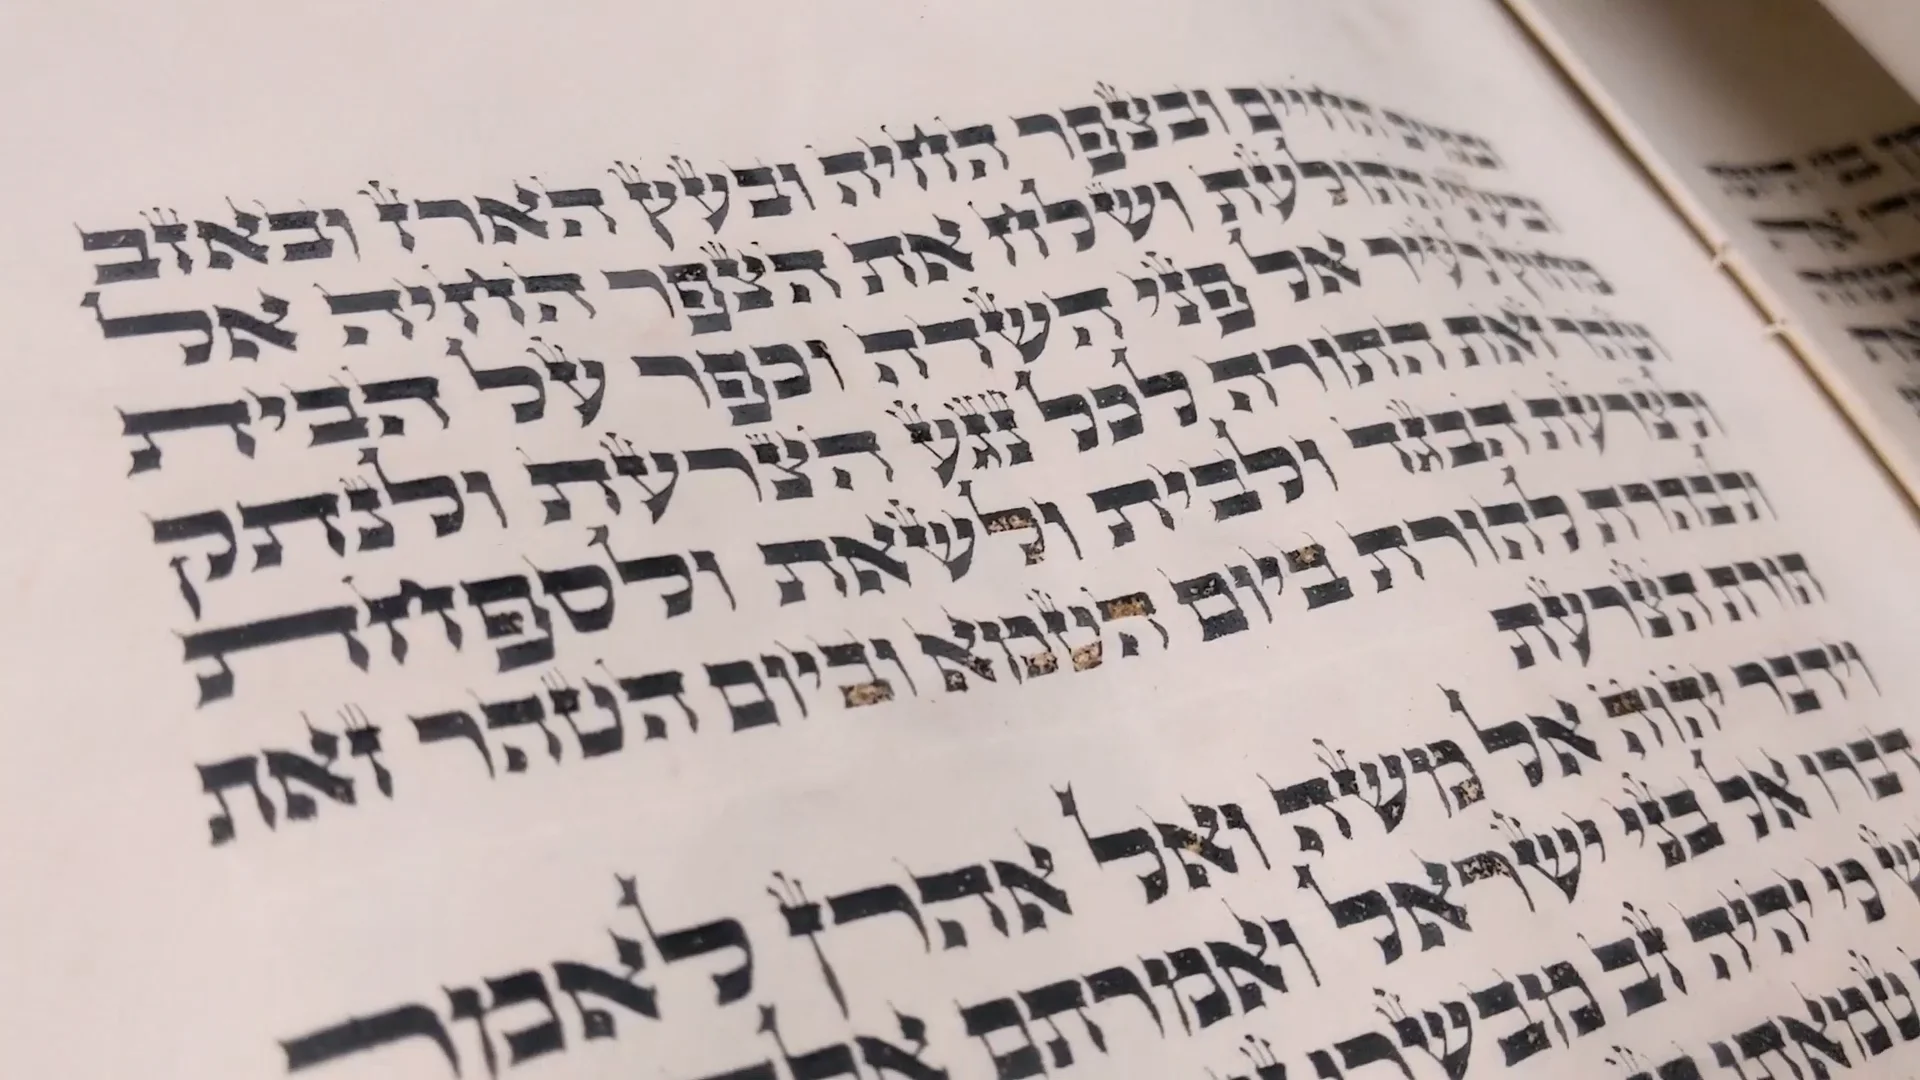 ובמים החיים ובצפר החיה ובעץ הארז ובאזב
ובשני התולעת ושלח את הצפר החיה אל
מחוץ לעיר אל פני השדה וכפר על הבית
וטהר זאת התורה לכל נגע הצרעת ולנתק
ולצרעת הבגד ולבית ולשאת ולספחת
ולבהרת להורת ביום הטמא וביום הטהר זאת
תורת הצרעת
וידבר יהוה אל משה ואל אהרן לאמר
דברו אל בני ישראל ואמרתם אלהם
כי יהיה זב מבשרו